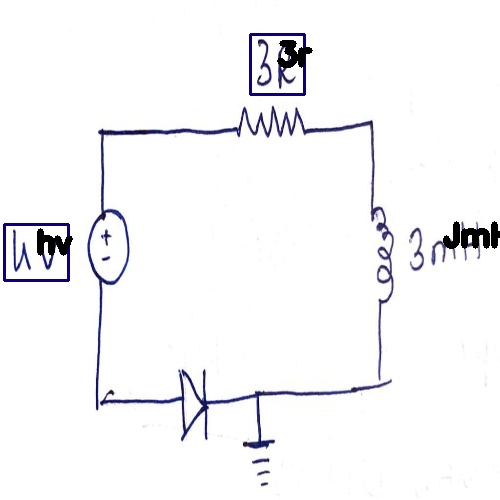 3R
3r
4V
hv
+
-
3mH
Jml